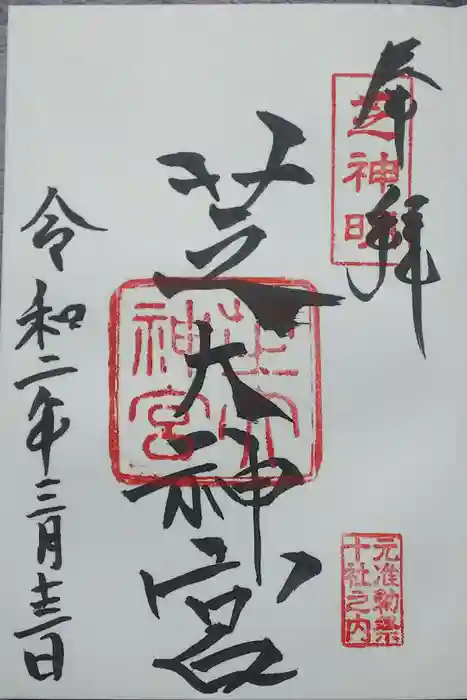 奉拝
芝神明
芝大神宮
芝大
神宮
令和二年三月十三日
元准勅祭
十社之内